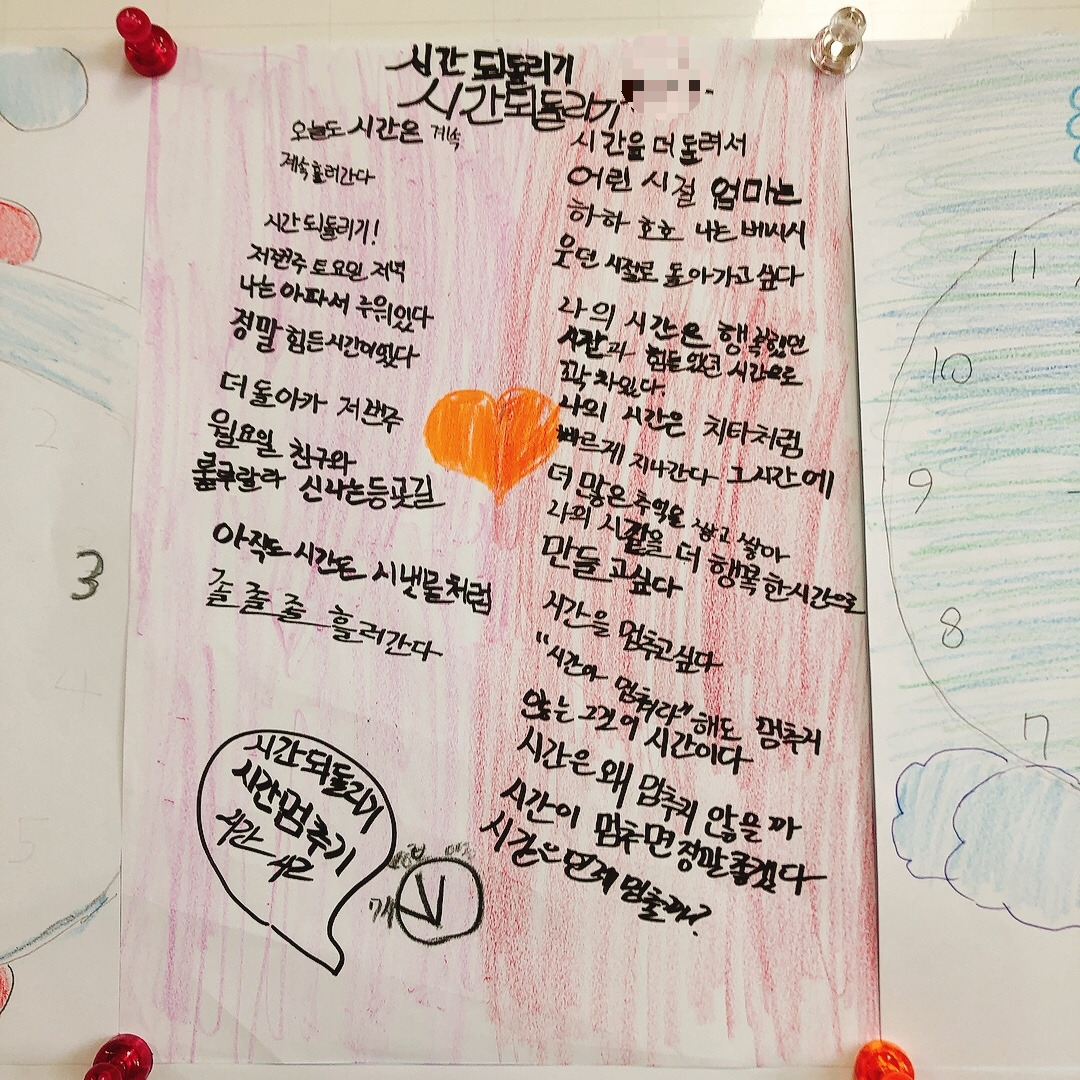 시간 되돌리기
시간되돌리기
오늘도 시간은 계속
계속 흘러간다
시간되돌리기!
저번주 토요일 저녁
나는 아파서 누워있다
정말 힘든 시간이였다
더 돌아가 저번주
월요일 친구와
룰루랄라 신나는 등굣길
아직도 시간은 시냇물처럼
졸 졸 졸 흘러간다
시간을 더 돌려서
어린 시절 엄마는
하하 호호 나는 베시시
웃던 시절로 돌아가고 싶다
나의 시간은 행복했던
시간과 힘들었던 시간으로
꽉 차있다.
나의 시간은 치타처럼
빠르게 지나간다 그시간에
더 많은 추억을 쌓고 쌓아
나의 시절을 더 행복한시간으로
만들고싶다
시간을 멈추고싶다
"시간아 멈춰라" 해도 멈추지
않는 그것이 시간이다
시간은 왜 멈추지 않을까
시간이 멈추면 정말 좋겠다
시간은 언제 멈출까?
시간되돌리기
시간멈추기
시간
3
2
4
5
11
10
9
8
7